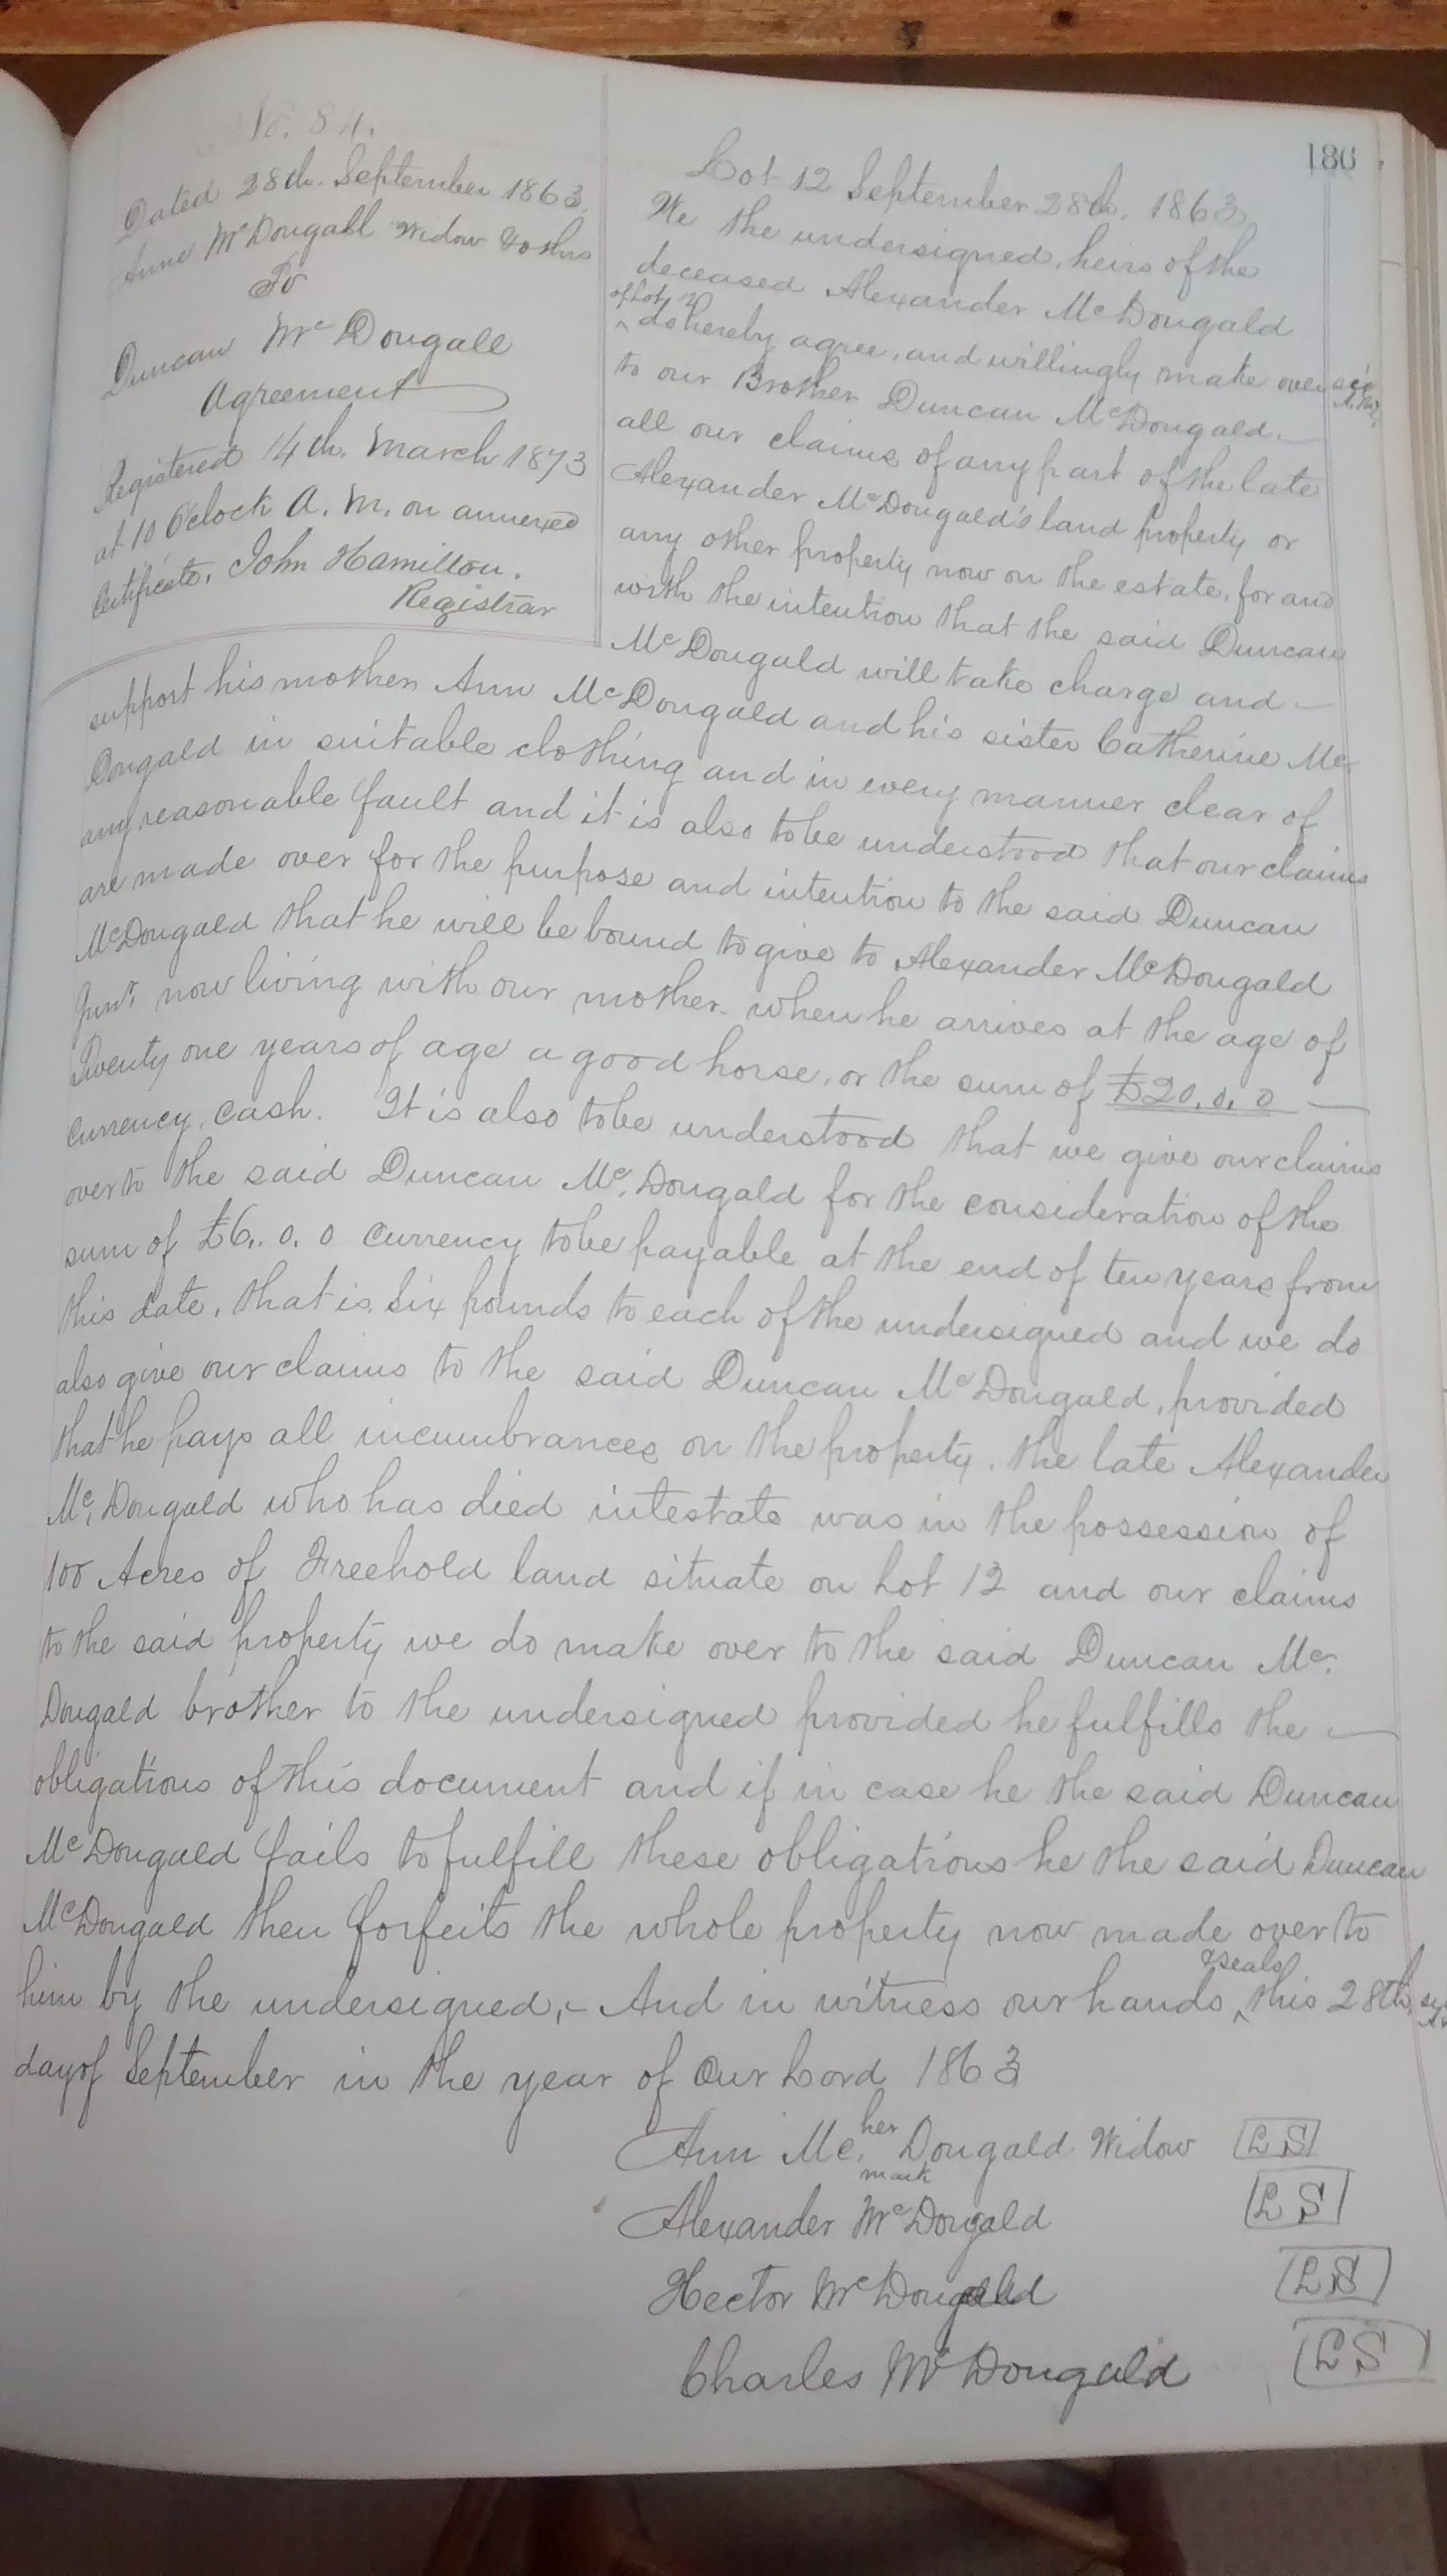 186
No. 84.
Dated 28th. September 1863.
Anne McDougall Widow & others
To
Duncan McDougall
Agreement
Registered 14th. March 1873
at 10 Oclock A. M. on annexed
Certificate. John Hamilton.
Registrar
Lot 12 September 28th. 1863
We the undersigned, heirs of the
deceased Alexander McDougald
of Lot 12
^ do hereby agree, and willingly make over sic
to our Brother Duncan McDougald —
all our claims of any part of the late
Alexander McDougald's land property or
any other property now on the estate, for and
with the intention that the said Duncan
McDougald will take charge and —
support his mother Ann McDougald and his sister Catherine Mc
Dougald in suitable clothing and in every manner clear of
any reasonable fault and it is also to be understood that our claims
are made over for the purpose and intention to the said Duncan
McDougald that he will be bound to give to Alexander McDougald
Junr. now living with our mother when he arrives at the age of
Twenty one years of age a good horse, or the sum of £20. 0. 0 —
Currency, Cash. It is also to be understood that we give our claims
over to the said Duncan Mc.Dougald for the consideration of the
sum of £6. 0. 0 Currency to be payable at the end of ten years from
this date, that is, Six pounds to each of the undersigned and we do
also give our claims to the said Duncan McDougald, provided
that he pays all incumbrances on the property, the late Alexander
Mc.Dougald who has died intestate was in the possession of
100 Acres of Freehold land situate on Lot 12 and our claims
to the said property we do make over to the said Duncan Mc.
Dougald brother to the undersigned provided he fulfills the —
obligations of this document and if in case he the said Duncan
McDougald fails to fulfill these obligations he the said Duncan
McDougald then forfeits the whole property now made over to
& seals
him by the undersigned, – And in witness our hands ^ this 28th.
day of September in the year of Our Lord 1863
her
Ann Mc. Dougald Widow LS
mark
Alexander McDougald LS
Hector McDougald LS
Charles McDougald LS